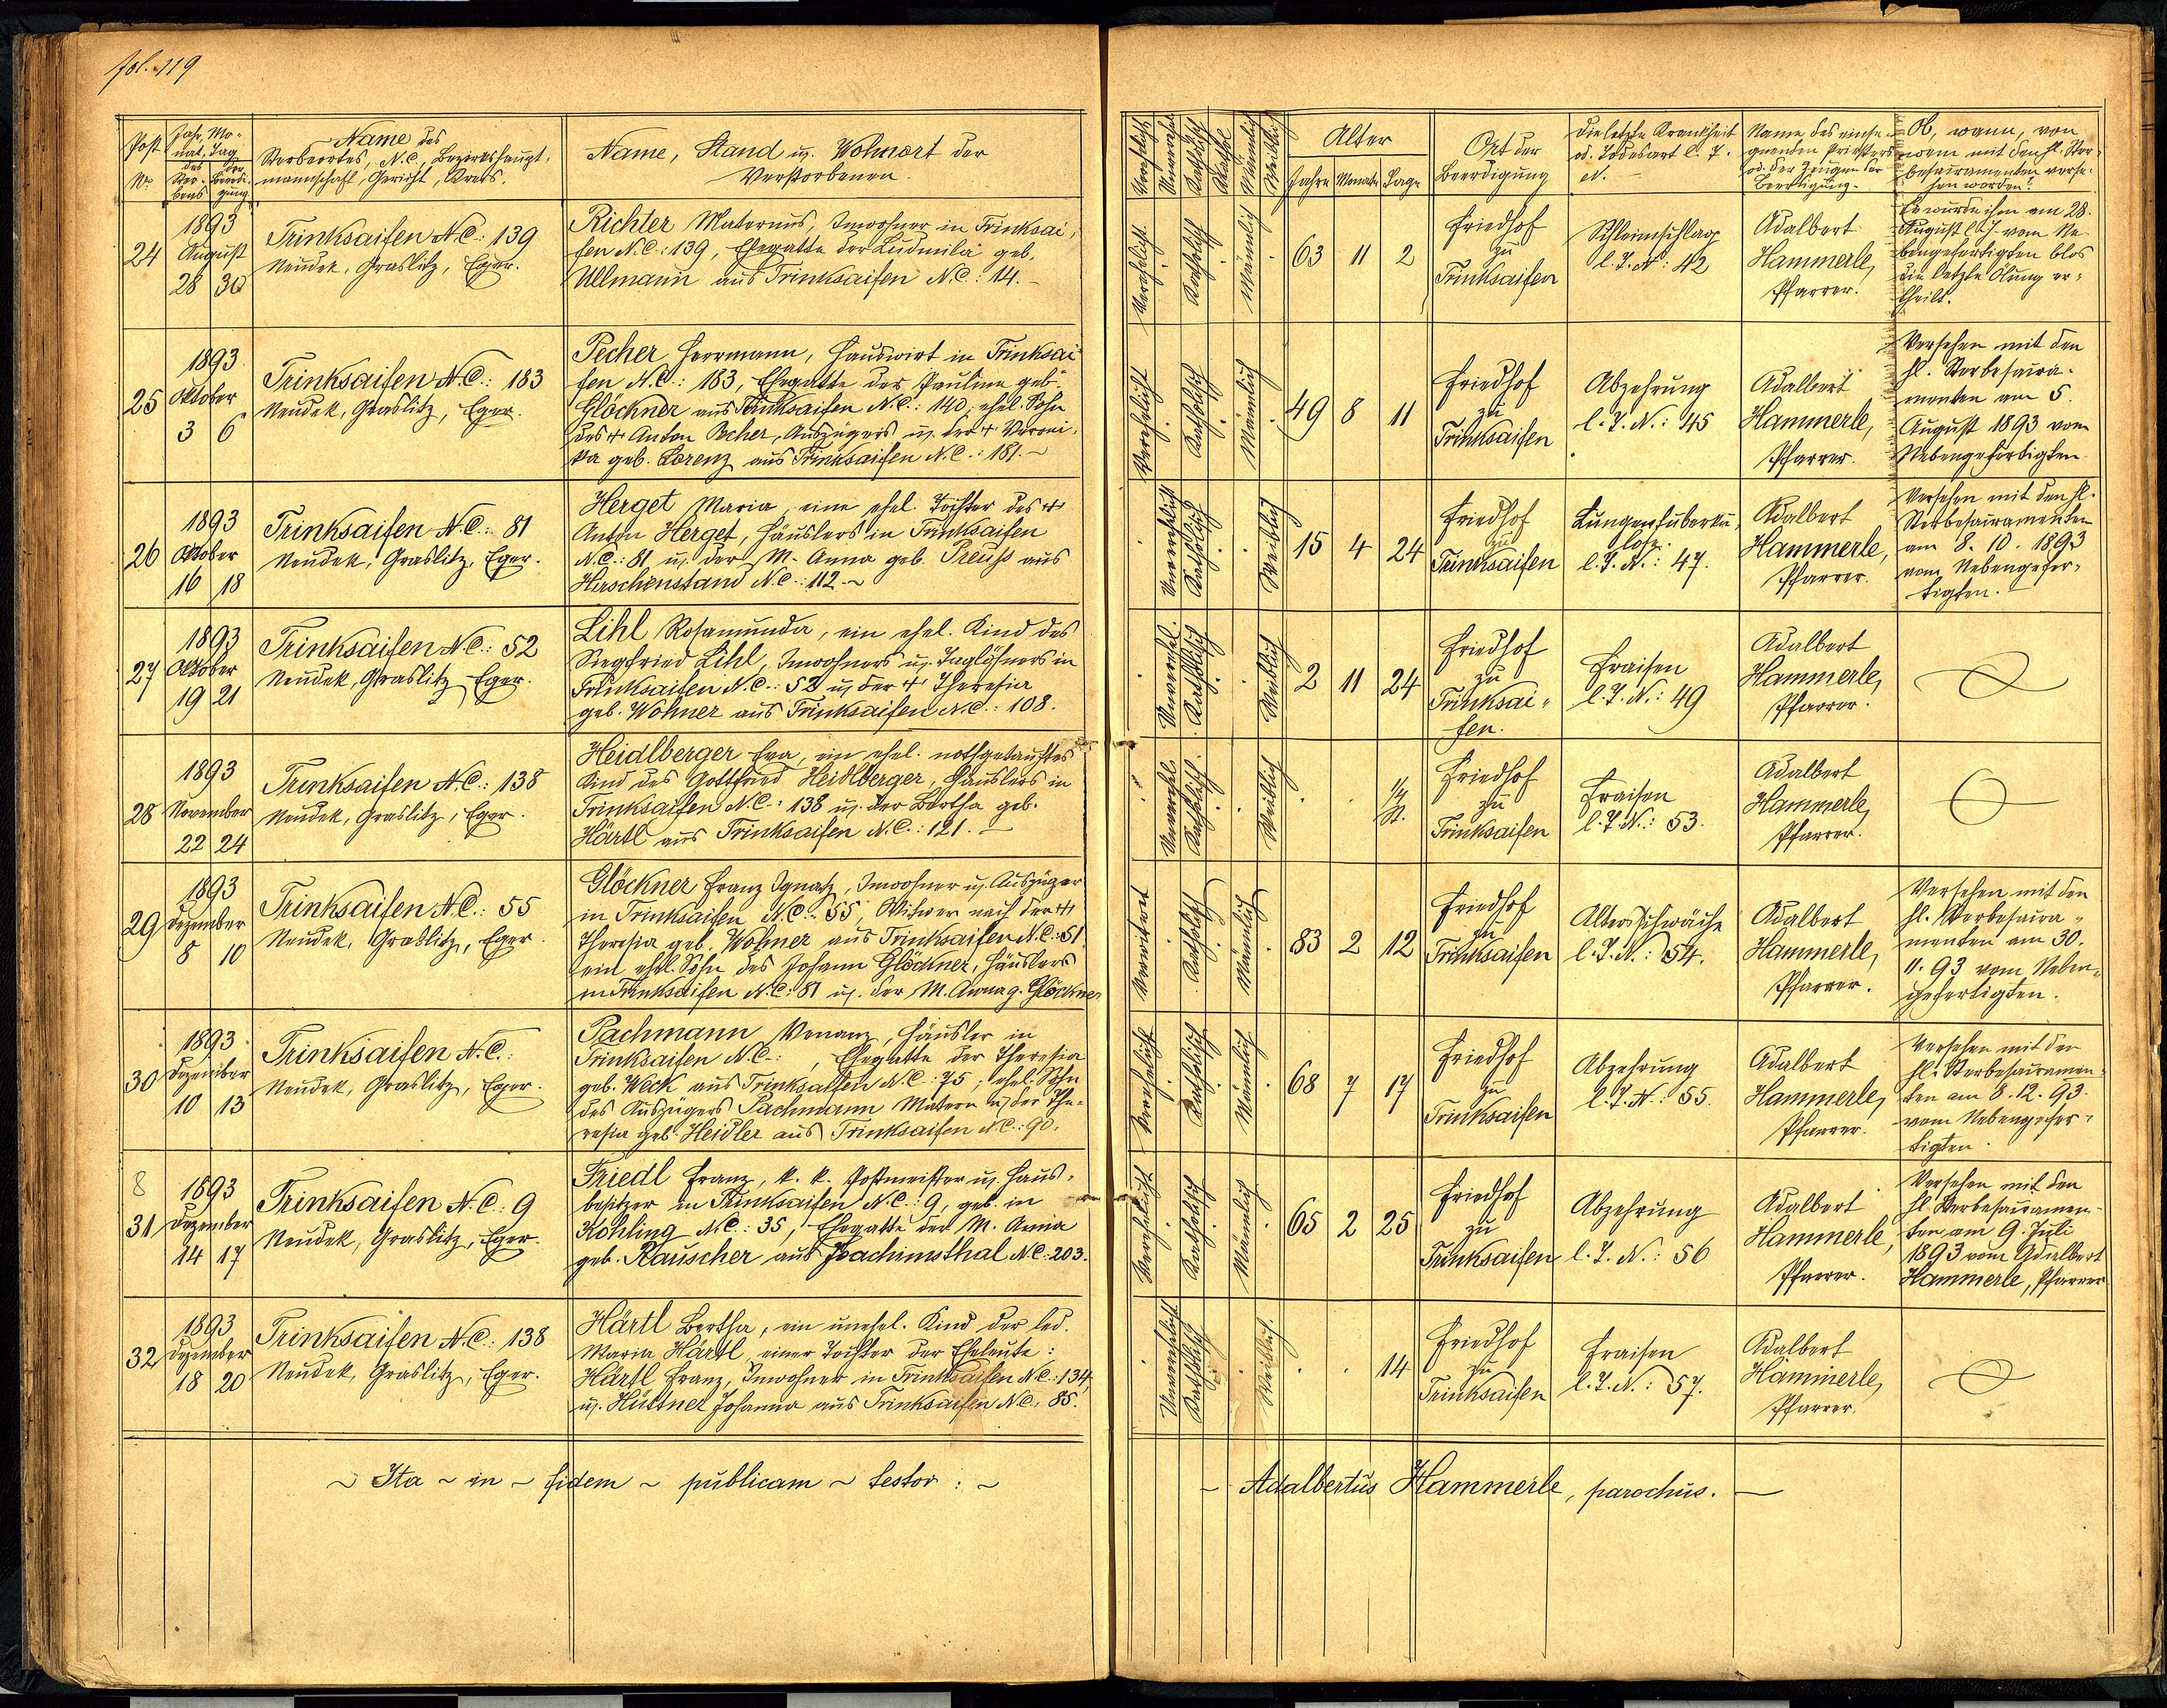 fol. 119
Post
No.
Jahr, Mo-
nat, Tag
des
Ster-
bens
der
Beerdi-
gung
Name des
Sterbeortes, N.C., Bezirkshaupt-
mannschaft, Gericht, Kreis.
Name, Stand u. Wohnort der
Verstorbenen
Alter
Jahre Monate Tage
Ort der
Beerdigung
Die letzte Krankheit
od. Todesart l. T.
Name des einse-
gnenden Priesters
od. der Zeugen der
Beerdigung.
Ob, wann, von
wem mit den hl. Ster-
besacramenten verse-
hen worden?
24
1893
August
28 30
Trinksaifen N.C.: 139
Neudek, Graslitz, Eger.
Richter Maternus, Inwohner in Trinksai-
fen N.C.: 139, Ehegatte der Ludmila geb.
Ullmann aus Trinksaifen N.C.: 14.
Verehelicht
Katholisch
Männlich
63 11 2
Friedhof
zu
Trinksaifen
Schleimschlag
l. T. N.: 42
Adalbert
Hammerle,
Pfarrer.
Es wurde ihm am 28.
August l. J. vom Ne-
bengefertigten blos
die letzte Ölung er-
theilt.
25
1893
Oktober
3 6
Trinksaifen N.C.: 183
Neudek, Graslitz, Eger.
Pecher Herrmann, Hauswirt in Trinksai-
fen N.C.: 183, Ehegatte der Pauline geb.
Glöckner aus Trinksaifen N.C.: 140, ehel. Sohn
des + Anton Pecher, Auszügers u. der + Veroni-
ka geb. Lorenz aus Trinksaifen N.C.: 181.
Verehelicht
Katholisch
Männlich
49 8 11
Friedhof
zu
Trinksaifen
Abzehrung
l. T. N.: 45
Adalbert
Hammerle,
Pfarrer.
Versehen mit den
hl. Sterbesacra-
menten am 5.
August 1893 vom
Nebengefertigten.
26
1893
Oktober
16 18
Trinksaifen N.C.: 81
Neudek, Graslitz, Eger.
Herget Maria, eine ehel. Tochter des +
Anton Herget, Häuslers in Trinksaifen
N.C.: 81 u. der M. Anna geb. Preuss aus
Hirschenstand N.C.: 112.
Unverehelicht
Katholisch
Weiblich
15 4 24
Friedhof
zu
Trinksaifen
Lungentuberku-
lose
l. T. N.: 47.
Adalbert
Hammerle,
Pfarrer.
Versehen mit den hl.
Sterbesacramenten
am 8. 10. 1893
vom Nebengefer-
tigten.
27
1893
Oktober
19 21
Trinksaifen N.C.: 52
Neudek, Graslitz, Eger.
Lihl Rosamunda, ein ehel. Kind des
Siegfried Lihl, Inwohners u. Taglöhners in
Trinksaifen N.C.: 52 u. der + Theresia
geb. Wohner aus Trinksaifen N.C.: 108.
Unverehel.
Katholisch
Weiblich
2 11 24
Friedhof
zu
Trinksai-
fen.
Fraisen
l. T. N.: 49
Adalbert
Hammerle,
Pfarrer.
28
1893
November
22 24
Trinksaifen N.C.: 138
Neudek, Graslitz, Eger.
Heidlberger Eva, ein ehel. nothgetauftes
Kind des Gottfried Heidlberger, Häuslers in
Trinksaifen N.C.: 138 u. der Bertha geb.
Härtl aus Trinksaifen N.C.: 121.
Unverehel.
Katholisch
Weiblich
1/4
St.
Friedhof
zu
Trinksaifen
Fraisen
l. T. N.: 53.
Adalbert
Hammerle,
Pfarrer.
29
1893
Dezember
8 10
Trinksaifen N.C.: 55
Neudek, Graslitz, Eger.
Glöckner Franz Ignatz, Inwohner u. Auszüger
in Trinksaifen N.C.: 55, Witwer nach der +
Theresia geb. Wohner aus Trinksaifen N.C.: 51,
ein ehel. Sohn des Johann Glöckner, Häuslers
in Trinksaifen N.C.: 81 u. der M. Anna g. Glöckner
Verwitwet
Katholisch
Männlich
83 2 12
Friedhof
zu
Trinksaifen
Altersschwäche
l. T. N.: 54.
Adalbert
Hammerle,
Pfarrer.
Versehen mit den
hl. Sterbesacra-
menten am 30.
11. 93 vom Neben-
gefertigten.
30
1893
Dezember
10 13
Trinksaifen N.C.:
Neudek, Graslitz, Eger.
Pachmann Venanz, Häusler in
Trinksaifen N.C.: , Ehegatte der Theresia
geb. Weck aus Trinksaifen N.C.: 75, ehel. Sohn
des Auszügers Pachmann Matern u. der The-
resia geb. Heidler aus Trinksaifen N.C.: 90.
Verehelicht
Katholisch
Männlich
68 7 17
Friedhof
zu
Trinksaifen
Abzehrung
l. T. N.: 55.
Adalbert
Hammerle,
Pfarrer.
Versehen mit den
hl. Sterbesacramen-
ten am 8. 12. 93.
vom Nebengefer-
tigten
8
31
1893
Dezember
14 17
Trinksaifen N.C.: 9
Neudek, Graslitz, Eger.
Friedl Franz, k. k. Postmeister u. Haus-
besitzer in Trinksaifen N.C.: 9, geb. in
Kohling N.C.: 35, Ehegatte der M. Anna
geb. Rauscher aus Joachimsthal N.C.: 203.
Verehelicht
Katholisch
Männlich
65 2 25
Friedhof
zu
Trinksaifen
Abzehrung
l. T. N.: 56
Adalbert
Hammerle,
Pfarrer.
Versehen mit den
hl. Sterbesacramen-
ten am 9. Juli
1893 vom Adalbert
Hammerle, Pfarrer
32
1893
Dezember
18 20
Trinksaifen N.C.: 138
Neudek, Graslitz, Eger.
Härtl Bertha, ein unehel. Kind der led.
Maria Härtl, einer Tochter der Eheleute:
Härtl Franz, Inwohner in Trinksaifen N.C.: 134,
u. Hüttner Johanna aus Trinksaifen N.C.: 85.
Unverehelicht
Katholisch
Weiblich.
14
Friedhof
zu
Trinksaifen
Fraisen
l. T. N.: 57.
Adalbert
Hammerle,
Pfarrer.
~ Ita ~ in ~ fidem ~ publicam ~ testor : ~
~ Adalbertus Hammerle, parochus. —